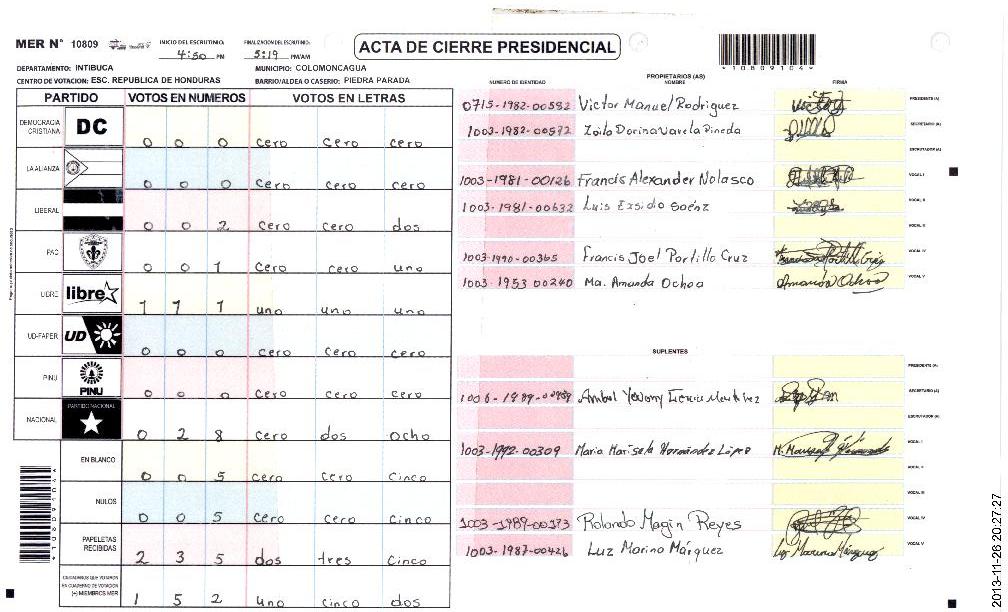 MER Nº 10809
INICIO DEL ESCRUTINIO: 4:50 PM
FINALIZACION DEL ESCRUTINIO: 5:19 PM/AM
ACTA DE CIERRE PRESIDENCIAL
*10809104*
DEPARTAMENTO: INTIBUCA
MUNICIPIO: COLOMONCAGUA
CENTRO DE VOTACION: ESC. REPUBLICA DE HONDURAS
BARRIO/ALDEA O CASERIO: PIEDRA PARADA
PARTIDO VOTOS EN NUMEROS VOTOS EN LETRAS
DEMOCRACIA CRISTIANA DC 0 0 0 cero cero cero
LA ALIANZA 0 0 0 cero cero cero
LIBERAL 0 0 2 cero cero dos
PAC 0 0 1 cero cero uno
LIBRE libre 1 1 1 uno uno uno
UD-FAPER UD 0 0 0 cero cero cero
PINU PINU 0 0 0 cero cero cero
NACIONAL PARTIDO NACIONAL 0 2 8 cero dos ocho
EN BLANCO 0 0 5 cero cero cinco
NULOS 0 0 5 cero cero cinco
PAPELETAS RECIBIDAS 2 3 5 dos tres cinco
CIUDADANOS QUE VOTARON EN CUADERNO DE VOTACION (+) MIEMBROS MER 1 5 2 uno cinco dos
*10809104*
PROPIETARIOS (AS)
NUMERO DE IDENTIDAD NOMBRE FIRMA
0715-1982-00582 Victor Manuel Rodriguez PRESIDENTE (A)
1003-1982-00572 Zoila Dorina Varela Pineda SECRETARIO (A)
ESCRUTADOR (A)
1003-1981-00126 Francis Alexander Nolasco VOCAL I
1003-1981-00632 Luis Saénz VOCAL II
VOCAL III
1003-1990-00365 Francis Joel Portillo Cruz VOCAL IV
1003-1953 00240 Ma. Amanda Ochoa Amanda Ochoa VOCAL V
SUPLENTES
PRESIDENTE (A)
SECRETARIO (A)
ESCRUTADOR (A)
1003-1992-00309 Maria Marisela Hernández López VOCAL I
VOCAL II
VOCAL III
1003-1989-00373 Rolando Magin Reyes VOCAL IV
1003-1987-00426 Luz Marina Márquez Luz Marina Márquez VOCAL V
2013-11-26 20:27:27